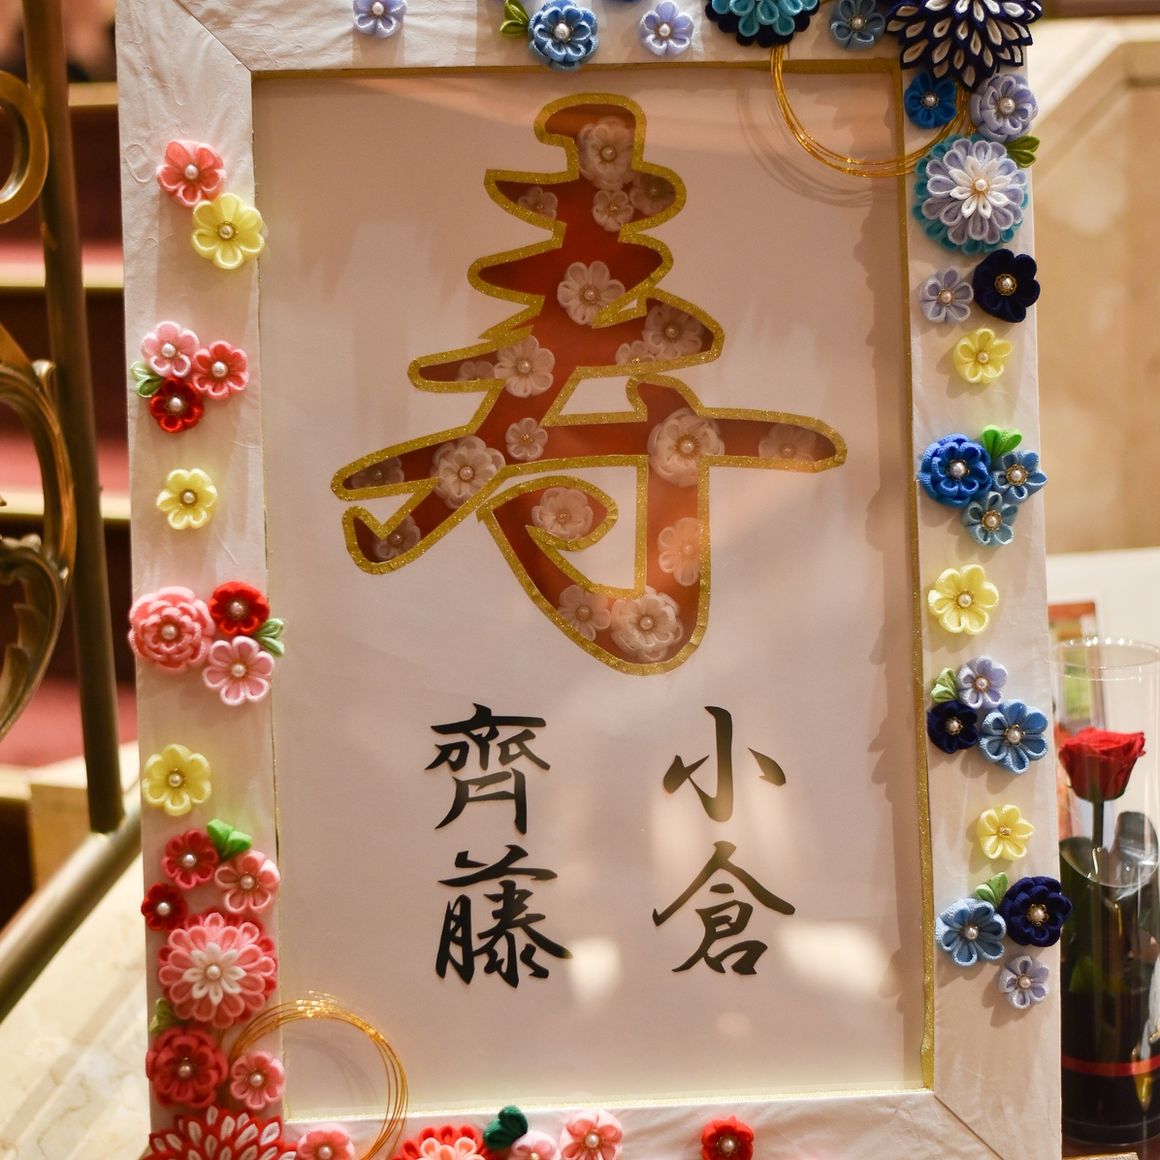 寿
小倉
齊藤